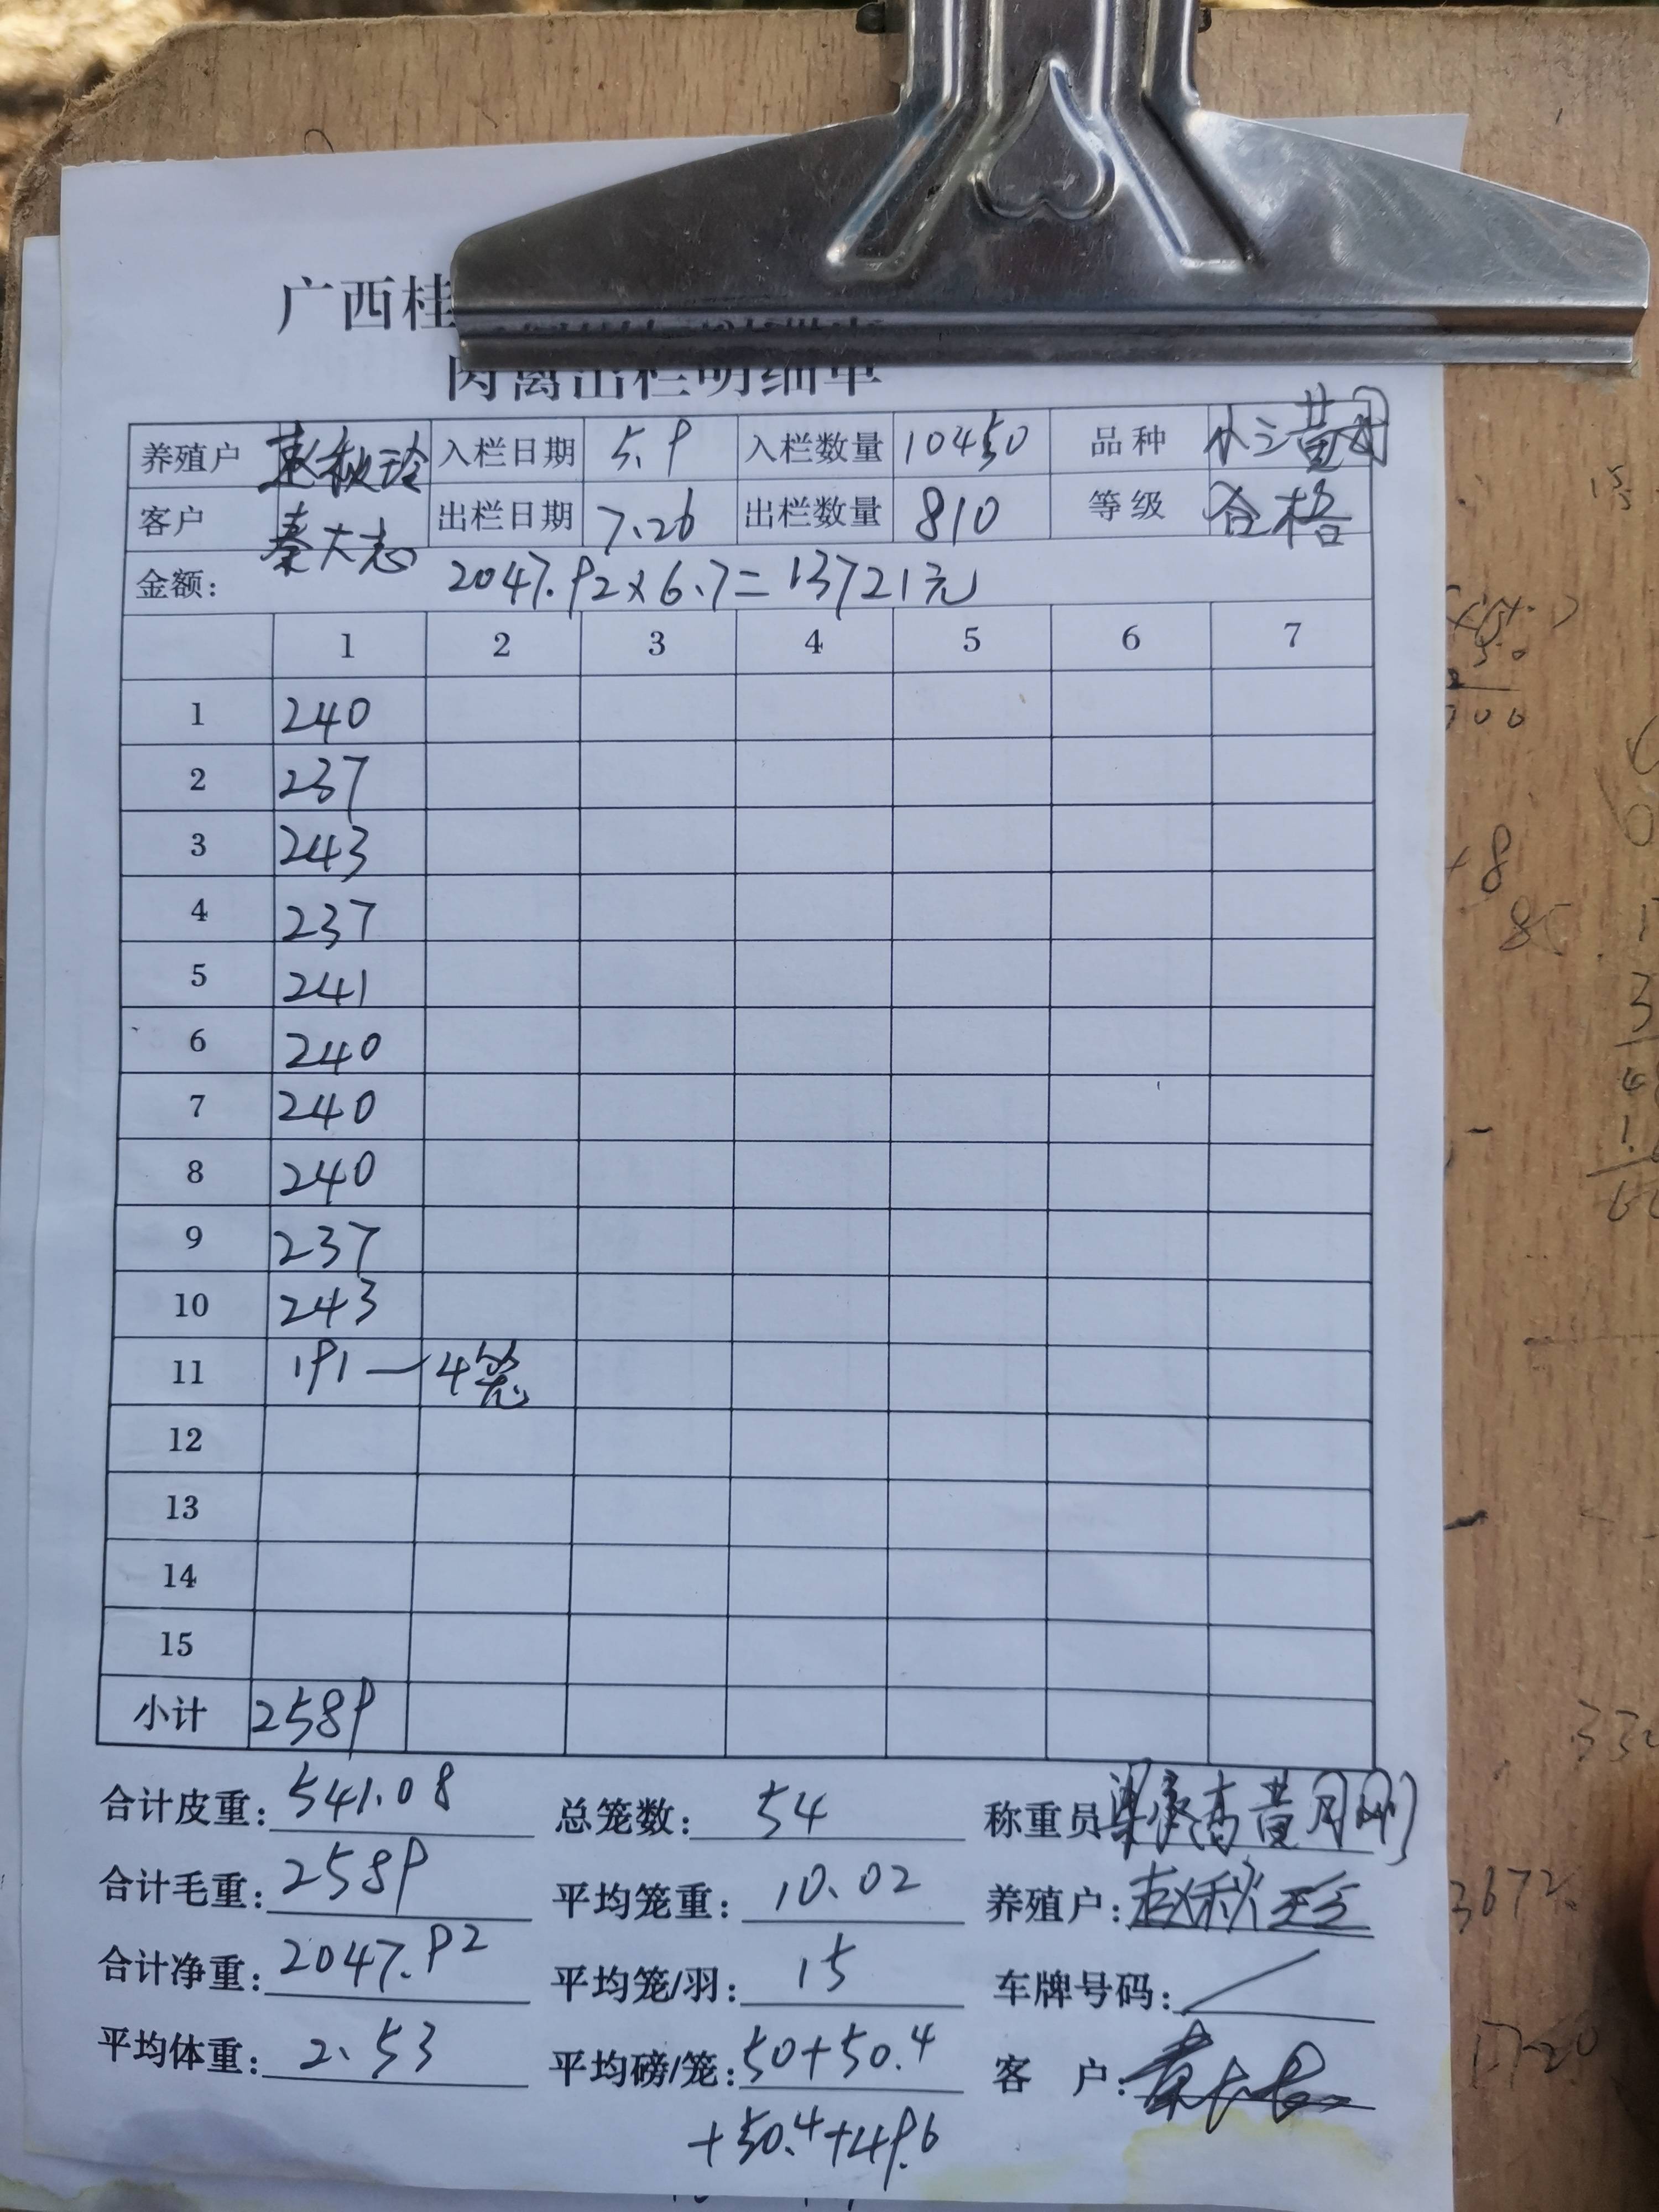 广西桂
肉禽出栏明细单
养殖户 赵秋玲 入栏日期 5.9 入栏数量 10450 品种 小三黄母
客户 秦大志 出栏日期 7.26 出栏数量 810 等级 合格
金额: 2047.92×6.7=13721元
1 2 3 4 5 6 7
1 240
2 237
3 243
4 237
5 241
6 240
7 240
8 240
9 237
10 243
11 191—4笼
12
13
14
15
小计 2589
合计皮重: 541.08 总笼数: 54 称重员
合计毛重: 2589 平均笼重: 10.02 养殖户: 赵秋玲
合计净重: 2047.92 平均笼/羽: 15 车牌号码: /
平均体重: 2.53 平均磅/笼: 50+50.4 客户:
+50.4+49.6